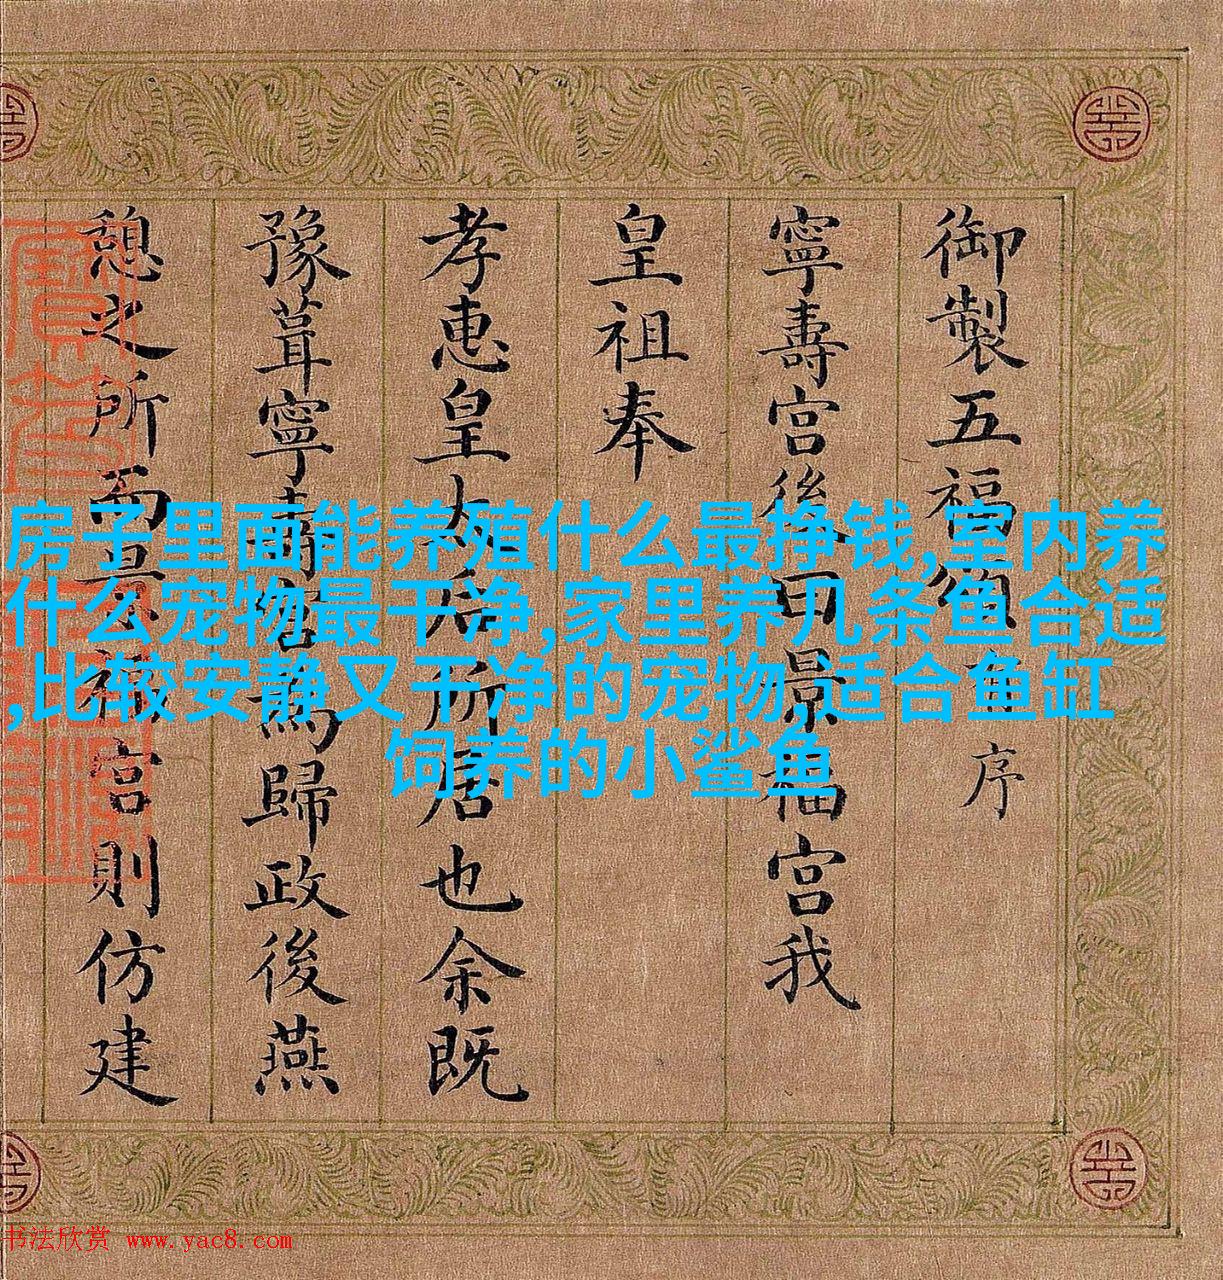 御製五福頌有序
寧壽宮後曰景福宮我
皇祖奉
孝惠皇太后所居也余既
豫葺寧壽宮為歸政後燕
憩之所而景福宮則仿建
房子里面能养殖什么最挣钱,室内养
什么宠物最干净,家里养几条鱼合适
,比较安静又干净的宠物,适合鱼缸
饲养的小鲨鱼
书法欣赏 www.yac8.com